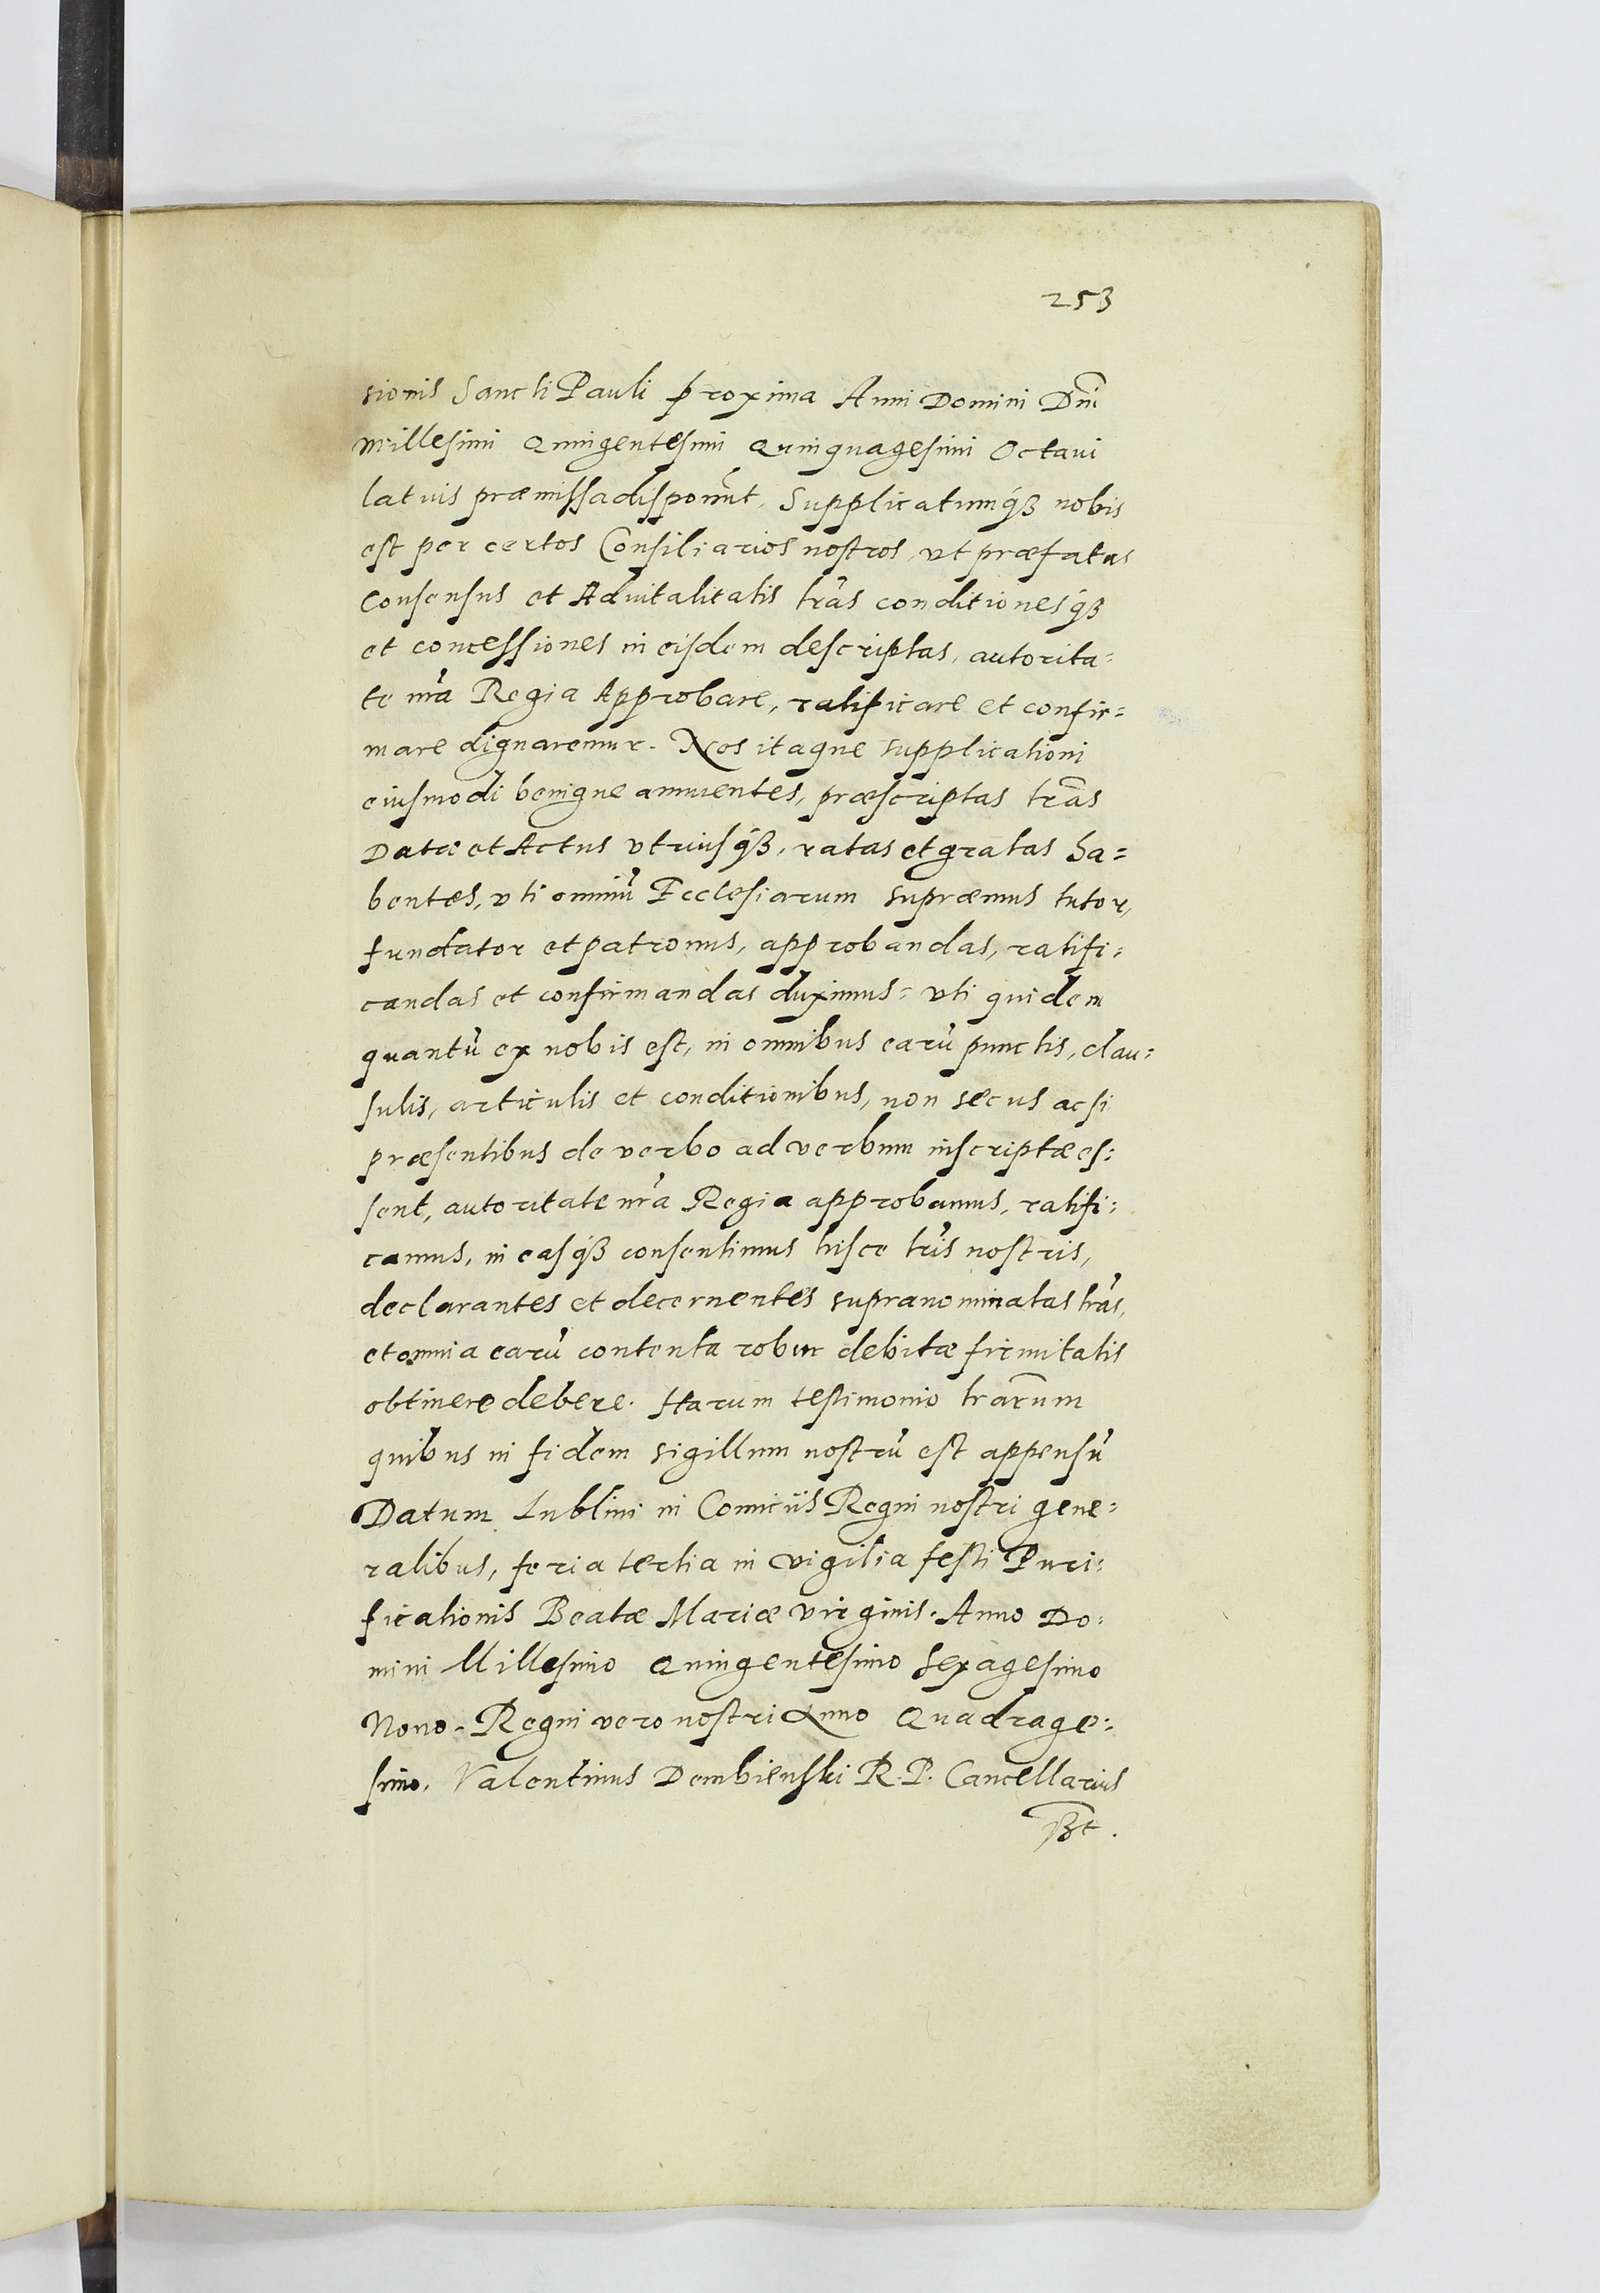 253
sionis Sancti Pauli proxima Anni Domini Dni
Millesimi Quingentesimi Quinquagesimi Octaui
latius præmissa disponunt, Supplicatumqꝫ nobis
est per certos Consiliarios nostros, vt præfatas
Consensus et Aduitalitatis lras conditionesqꝫ
et concessiones in eisdem descriptas, autorita=
te nra Regia Approbare, ratificare et confir=
mare dignaremur. Nos itaque supplicationi
eiusmodi benigne annuentes, præscriptas lras
Datæ et Actus vtriusqꝫ, ratas et gratas ha=
bentes, vti omniũ Ecclesiarum supræmus tutor,
fundator et patronus, approbandas, ratifi:
candas et confirmandas duximus= vti quidem
quantũ ex nobis est, in omnibus earũ punctis, clau=
sulis, articulis et conditionibus, non secus ac si
præsentibus de verbo ad verbum inscriptæ es:
sent, autoritate nra Regia approbamus, ratifi:
camus, in easqꝫ consentimus hisce lris nostris,
declarantes et decernentes supranominatas lras,
et omnia earũ contenta robur debitæ firmitatis
obtinere debere. Harum testimonio lrarum
quibus in fidem sigillum nostrũ est appensũ
Datum Lublini in Comitiis Regni nostri gene=
ralibus, feria tertia in vigilia festi Puri:
ficationis Beatæ Mariæ virginis. Anno Do:
mini Millesimo Quingentesimo Sexagesimo
Nono. Regni vero nostri Anno Quadrage:
simo. Valentinus Dembienski R. P. Cancellarius